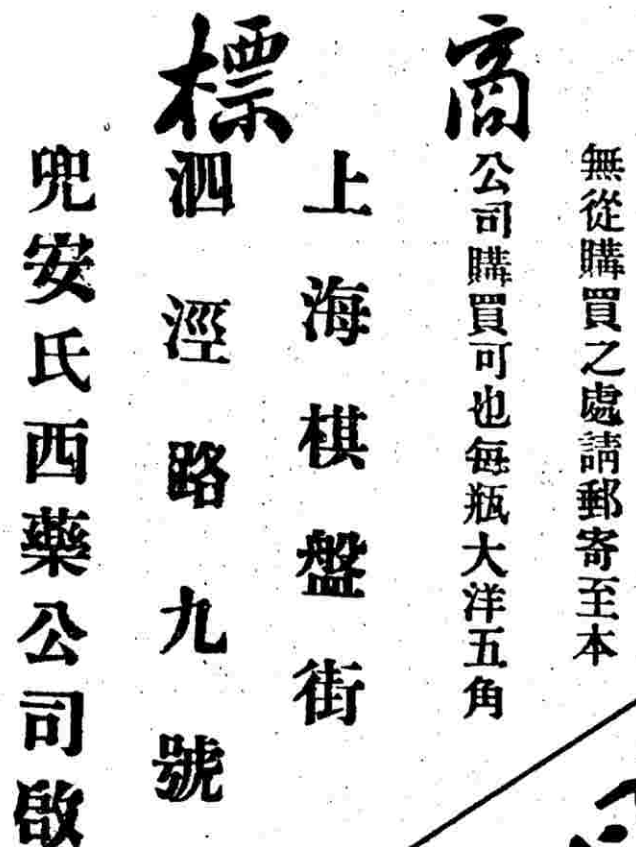 商標
無從購買之處請郵寄至本
公司購買可也每瓶大洋五角
上海棋盤街
泗涇路九號
兜安氏西藥公司啟